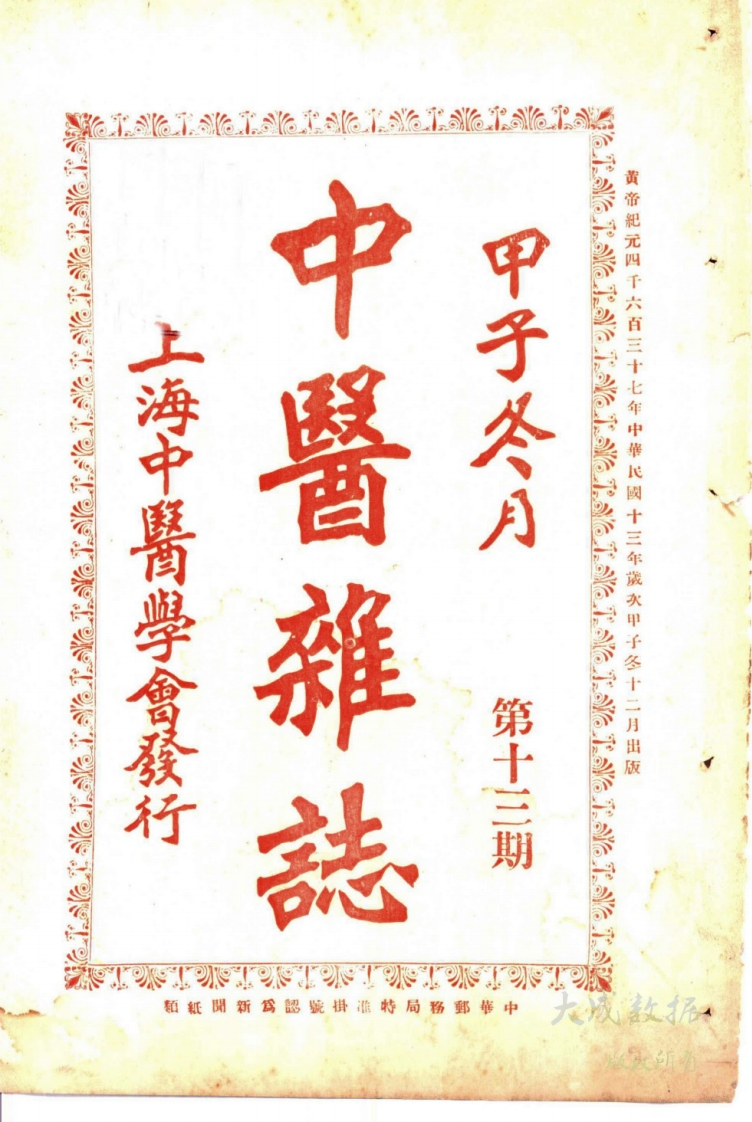 黃帝紀元四千六百三十七年中華民國十三年歲次甲子冬十二月出版
甲子冬月
第十三期
中醫雜誌
上海中醫學會發行
中華郵務局特准掛號認爲新聞紙類
大成数据
版权所有